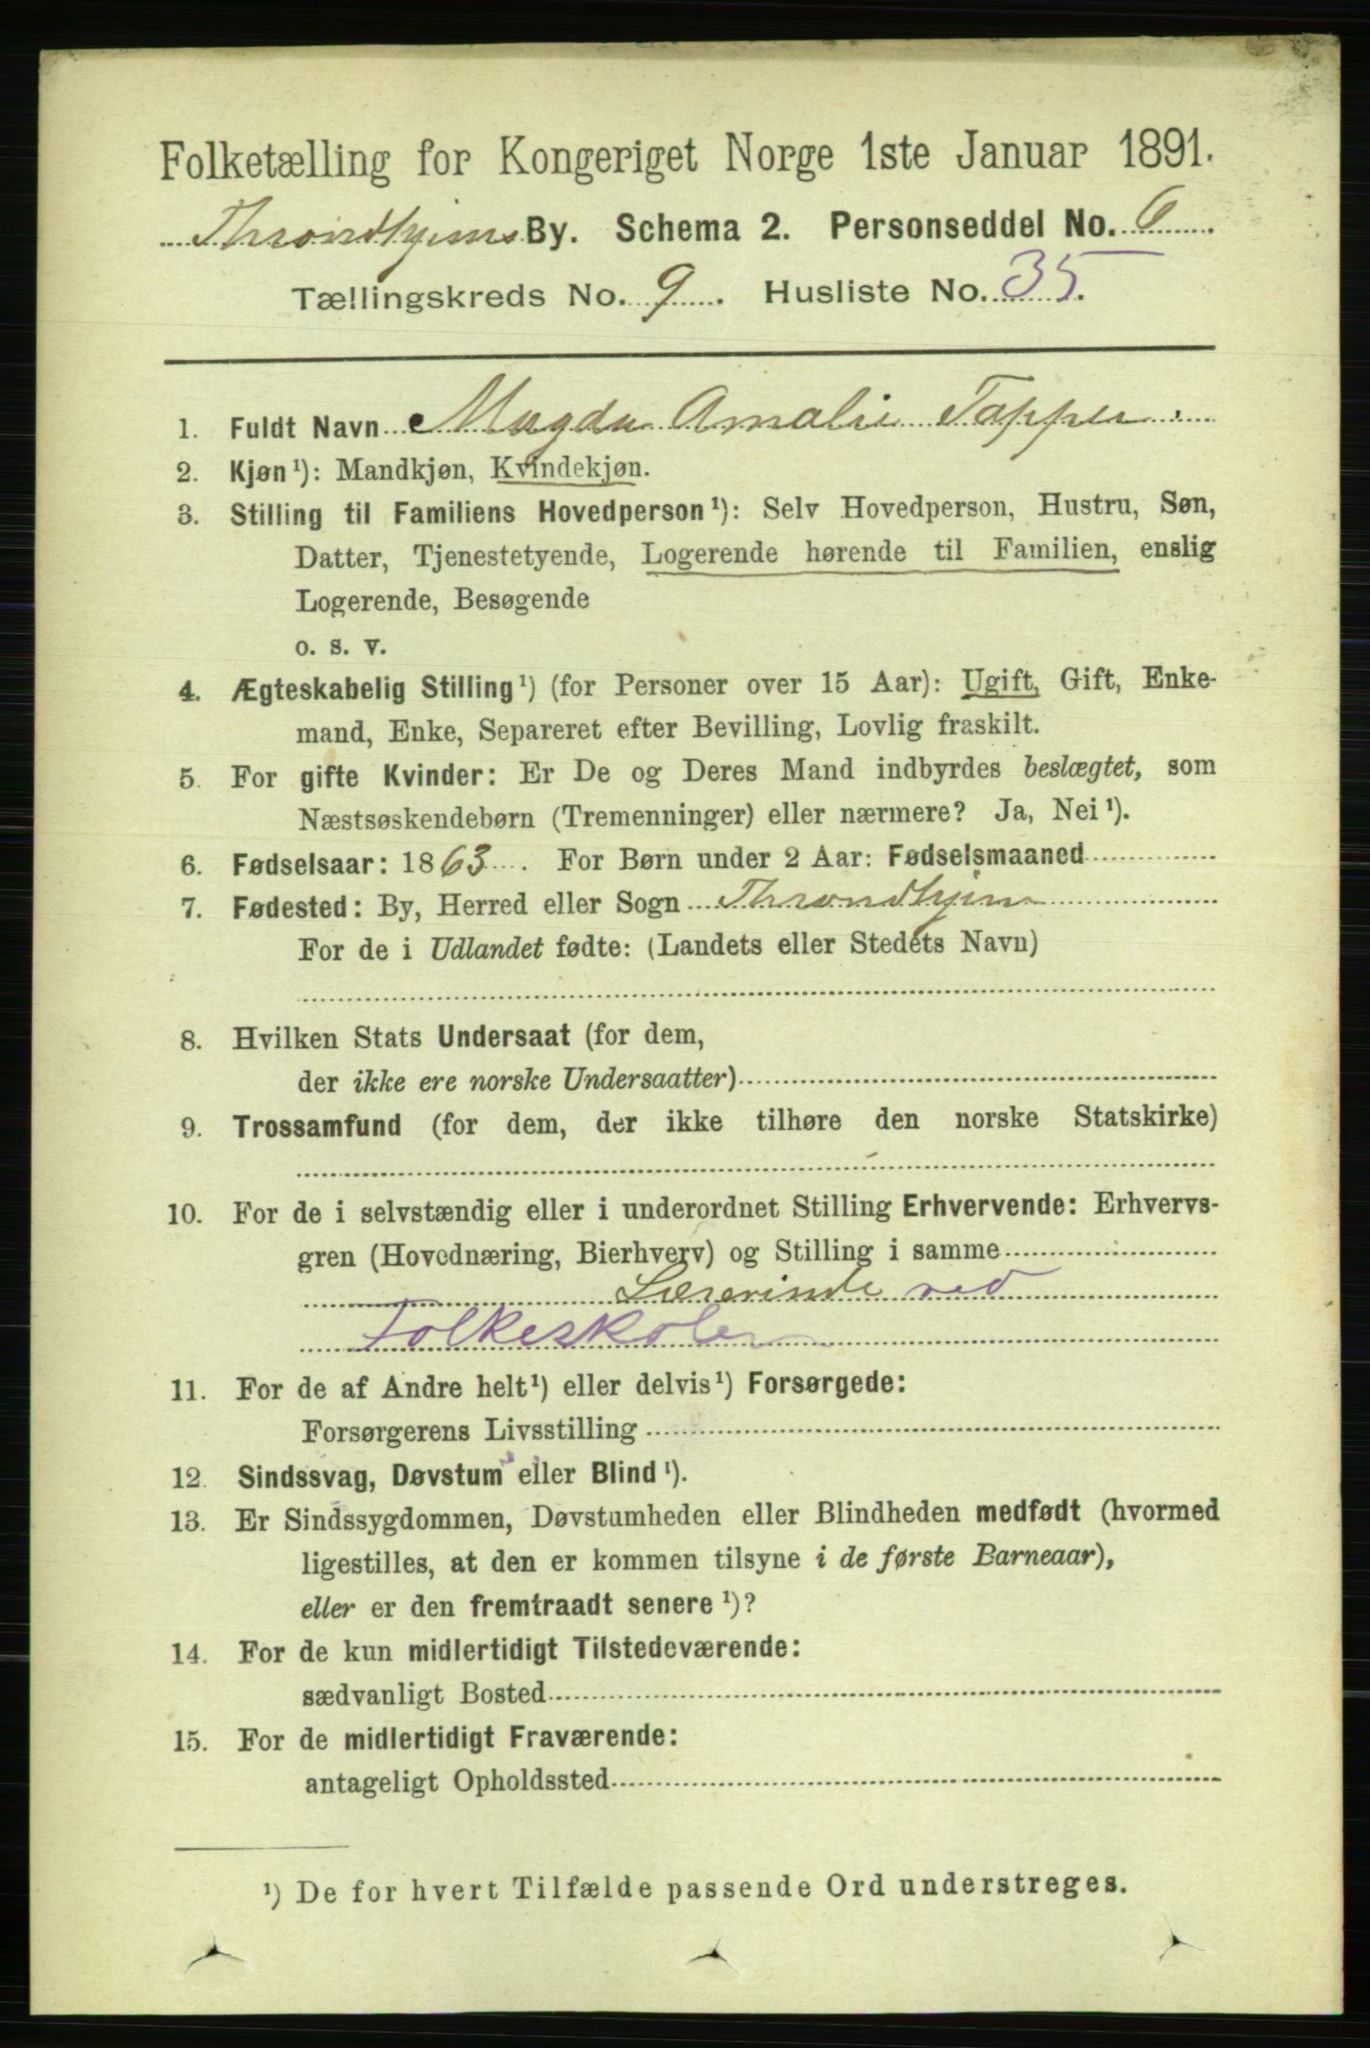 Folketælling for Kongeriget Norge 1ste Januar 1891.
Throndhjems By. Schema 2. Personseddel No. 6
Tællingskreds No. 9. Husliste No. 35.
1. Fuldt Navn Magda Amalie Tapper.
2. Kjøn¹): Mandkjøn, Kvindekjøn.
3. Stilling til Familiens Hovedperson¹): Selv Hovedperson, Hustru, Søn,
Datter, Tjenestetyende, Logerende hørende til Familien, enslig
Logerende, Besøgende
o. s. v.
4. Ægteskabelig Stilling¹) (for Personer over 15 Aar): Ugift, Gift, Enke-
mand, Enke, Separeret efter Bevilling, Lovlig fraskilt.
5. For gifte Kvinder: Er De og Deres Mand indbyrdes beslægtet, som
Næstsøskendebørn (Tremenninger) eller nærmere? Ja, Nei¹).
6. Fødselsaar: 1863. For Børn under 2 Aar: Fødselsmaaned
7. Fødested: By, Herred eller Sogn Throndhjem
For de i Udlandet fødte: (Landets eller Stedets Navn)
8. Hvilken Stats Undersaat (for dem,
der ikke ere norske Undersaatter)
9. Trossamfund (for dem, der ikke tilhøre den norske Statskirke)
10. For de i selvstændig eller i underordnet Stilling Erhvervende: Erhvervs-
gren (Hovednæring, Bierhverv) og Stilling i samme
Lærerinde ved
Folkeskolen
11. For de af Andre helt¹) eller delvis¹) Forsørgede:
Forsørgerens Livsstilling
12. Sindssvag, Døvstum eller Blind¹).
13. Er Sindssygdommen, Døvstumheden eller Blindheden medfødt (hvormed
ligestilles, at den er kommen tilsyne i de første Barneaar),
eller er den fremtraadt senere¹)?
14. For de kun midlertidigt Tilstedeværende:
sædvanligt Bosted
15. For de midlertidigt Fraværende:
antageligt Opholdssted
¹) De for hvert Tilfælde passende Ord understreges.